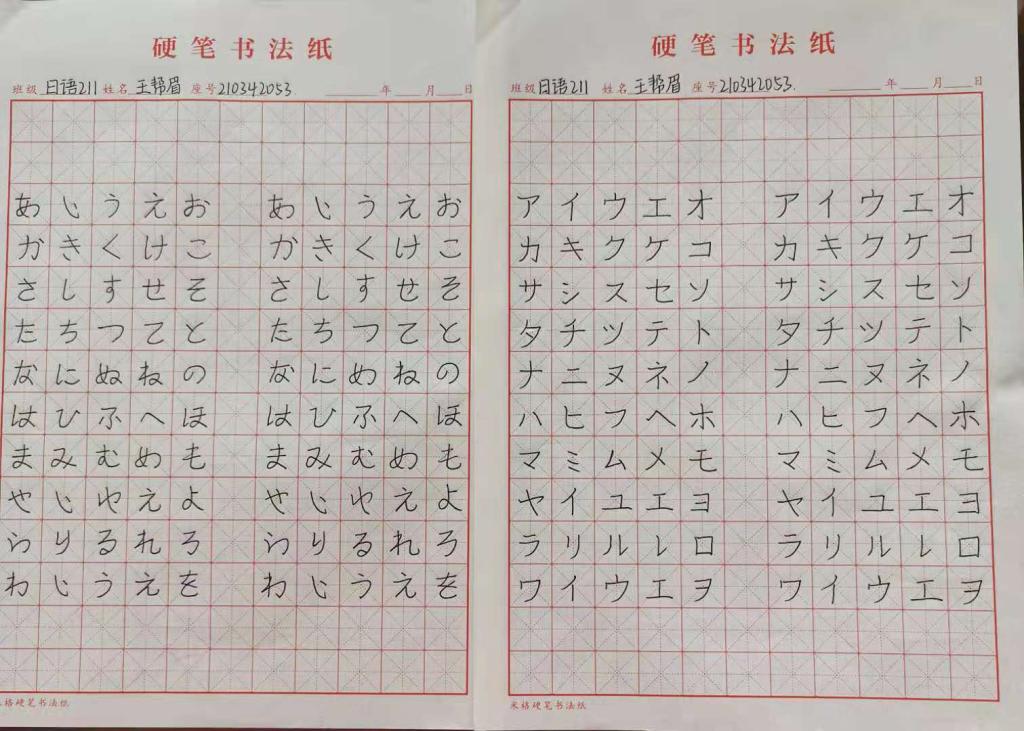 硬笔书法纸
班级 日语211 姓名 王帮眉 座号 210342053. 年 月 日
あいうえお あいうえお
かきくけこ かきくけこ
さしすせそ さしすせそ
たちつてと たちつてと
なにぬねの なにめねの
はひふへほ はひふへほ
まみむめも まみむめも
やいゆえよ やいゆえよ
らりるれろ らりるれろ
わいうえを わいうえを
米格硬笔书法纸
硬笔书法纸
班级 日语211 姓名 王帮眉 座号 210342053. 年 月 日
アイウエオ アイウエオ
カキクケコ カキクケコ
サシスセソ サシスセソ
タチツテト タチツテト
ナニヌネノ ナニヌネノ
ハヒフヘホ ハヒフヘホ
マミムメモ マミムメモ
ヤイユエヨ ヤイユエヨ
ラリルレロ ラリルレロ
ワイウエヲ ワイウエヲ
米格硬笔书法纸